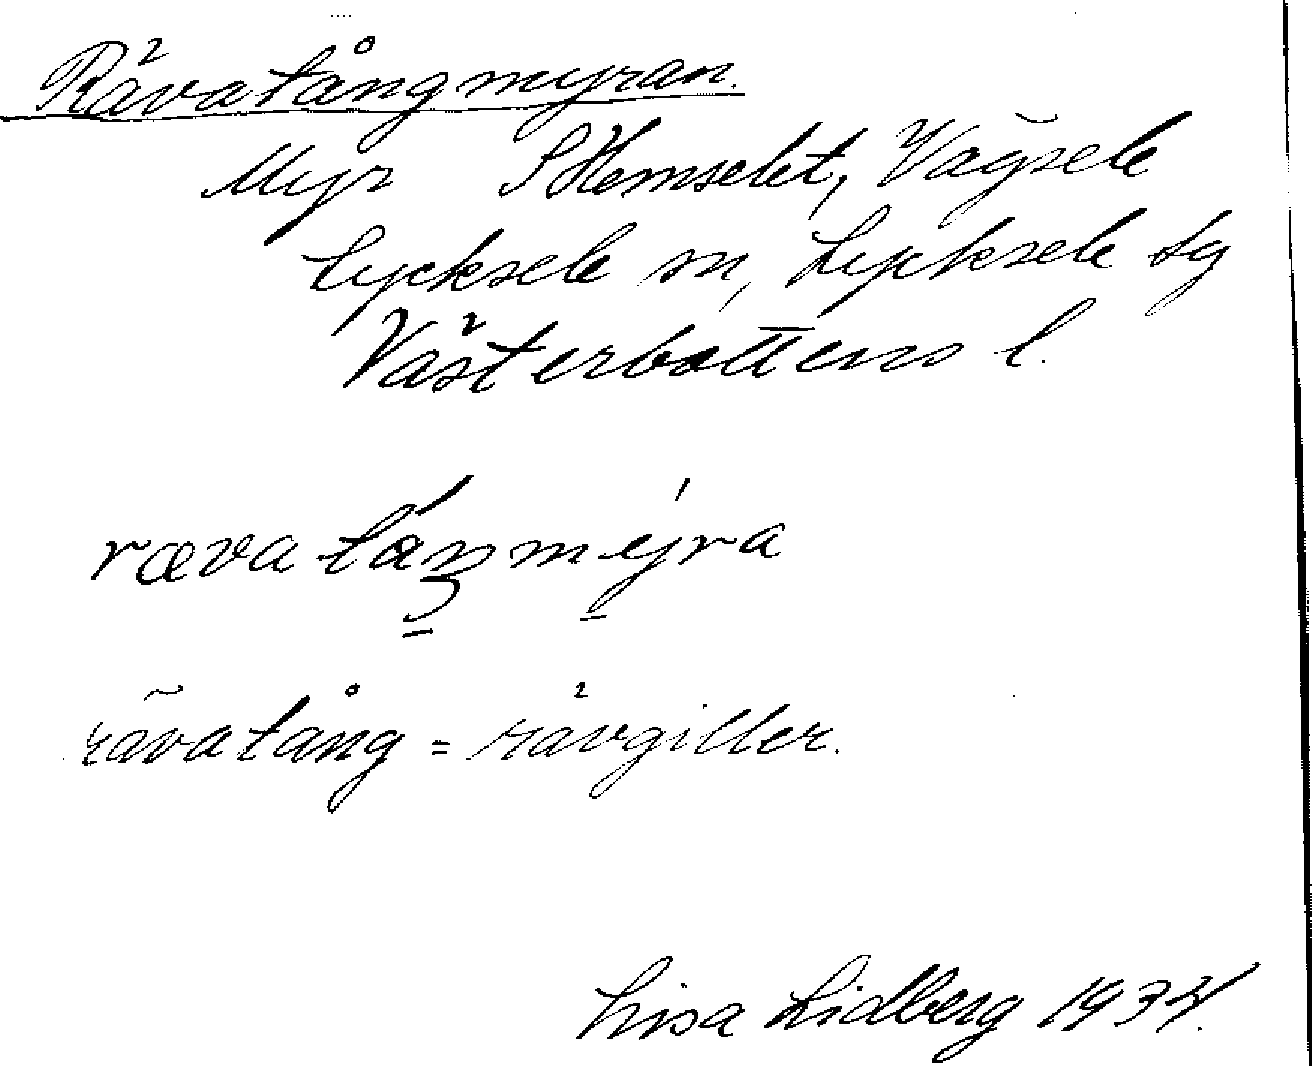 Rävatångmyran.
Myr S Hemselet, Vägsele
Lycksele sn, Lycksele tg
Västerbottens l.
rævatáŋmýra
rävatång = rävgiller.
Lisa Lidberg 1934.